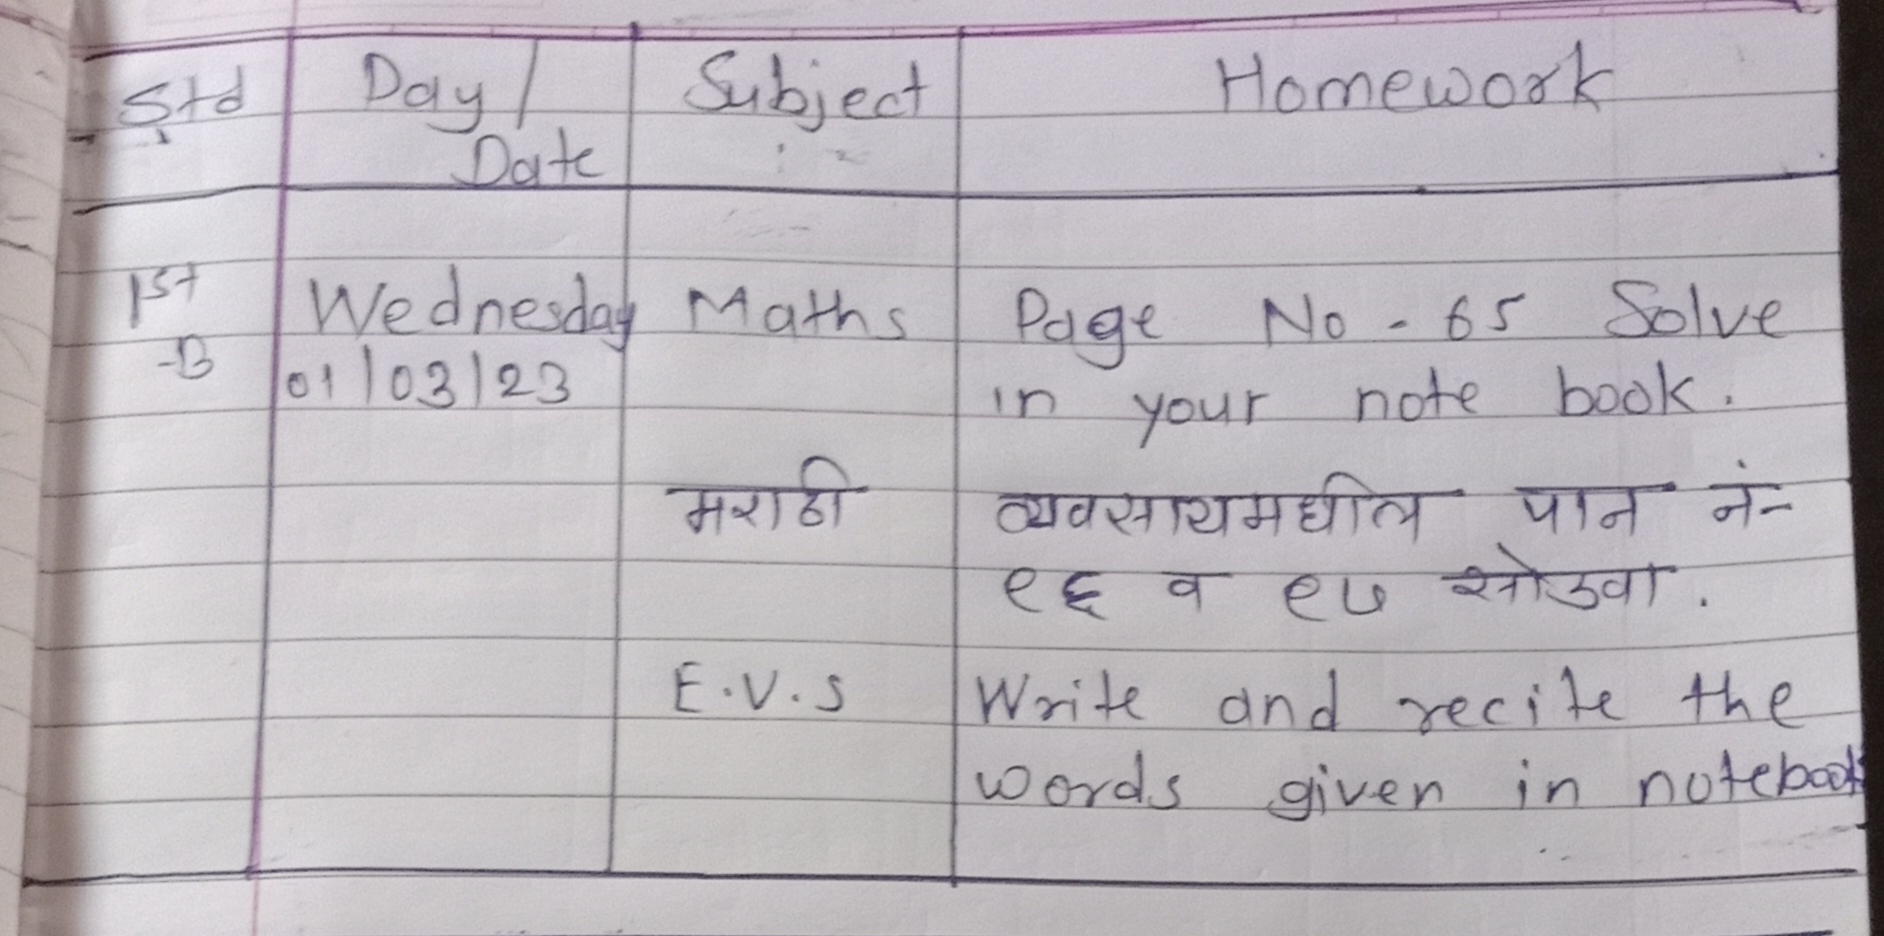 Std Day/ Subject Homework
Date
1st Wednesday Maths Page No - 65 Solve
-B 01/03/23 in your note book.
मराठी व्यवसायमधील पान नं-
१६ व १७ सोडवा.
E.V.S Write and recite the
words given in notebook